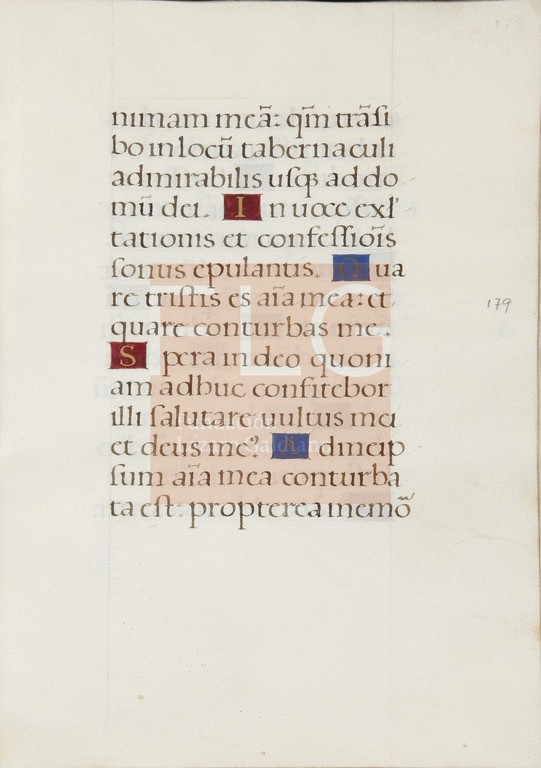 nimam meā: qm̄ trāsi
bo in locū tabernaculi
admirabilis usqꝫ ad do
mū dei. In uoce exl'
tationis et confessiōis
sonus epulantis. Qua
re tristis es aīa mea: et
quare conturbas me.
Spera in deo quoni
am adhuc confitebor
illi salutare uultus mei
et deus me⁹. Ad meip
sum aīa mea conturba
ta est: propterea memō
179
FLG
Fundación
Lázaro Galdiano